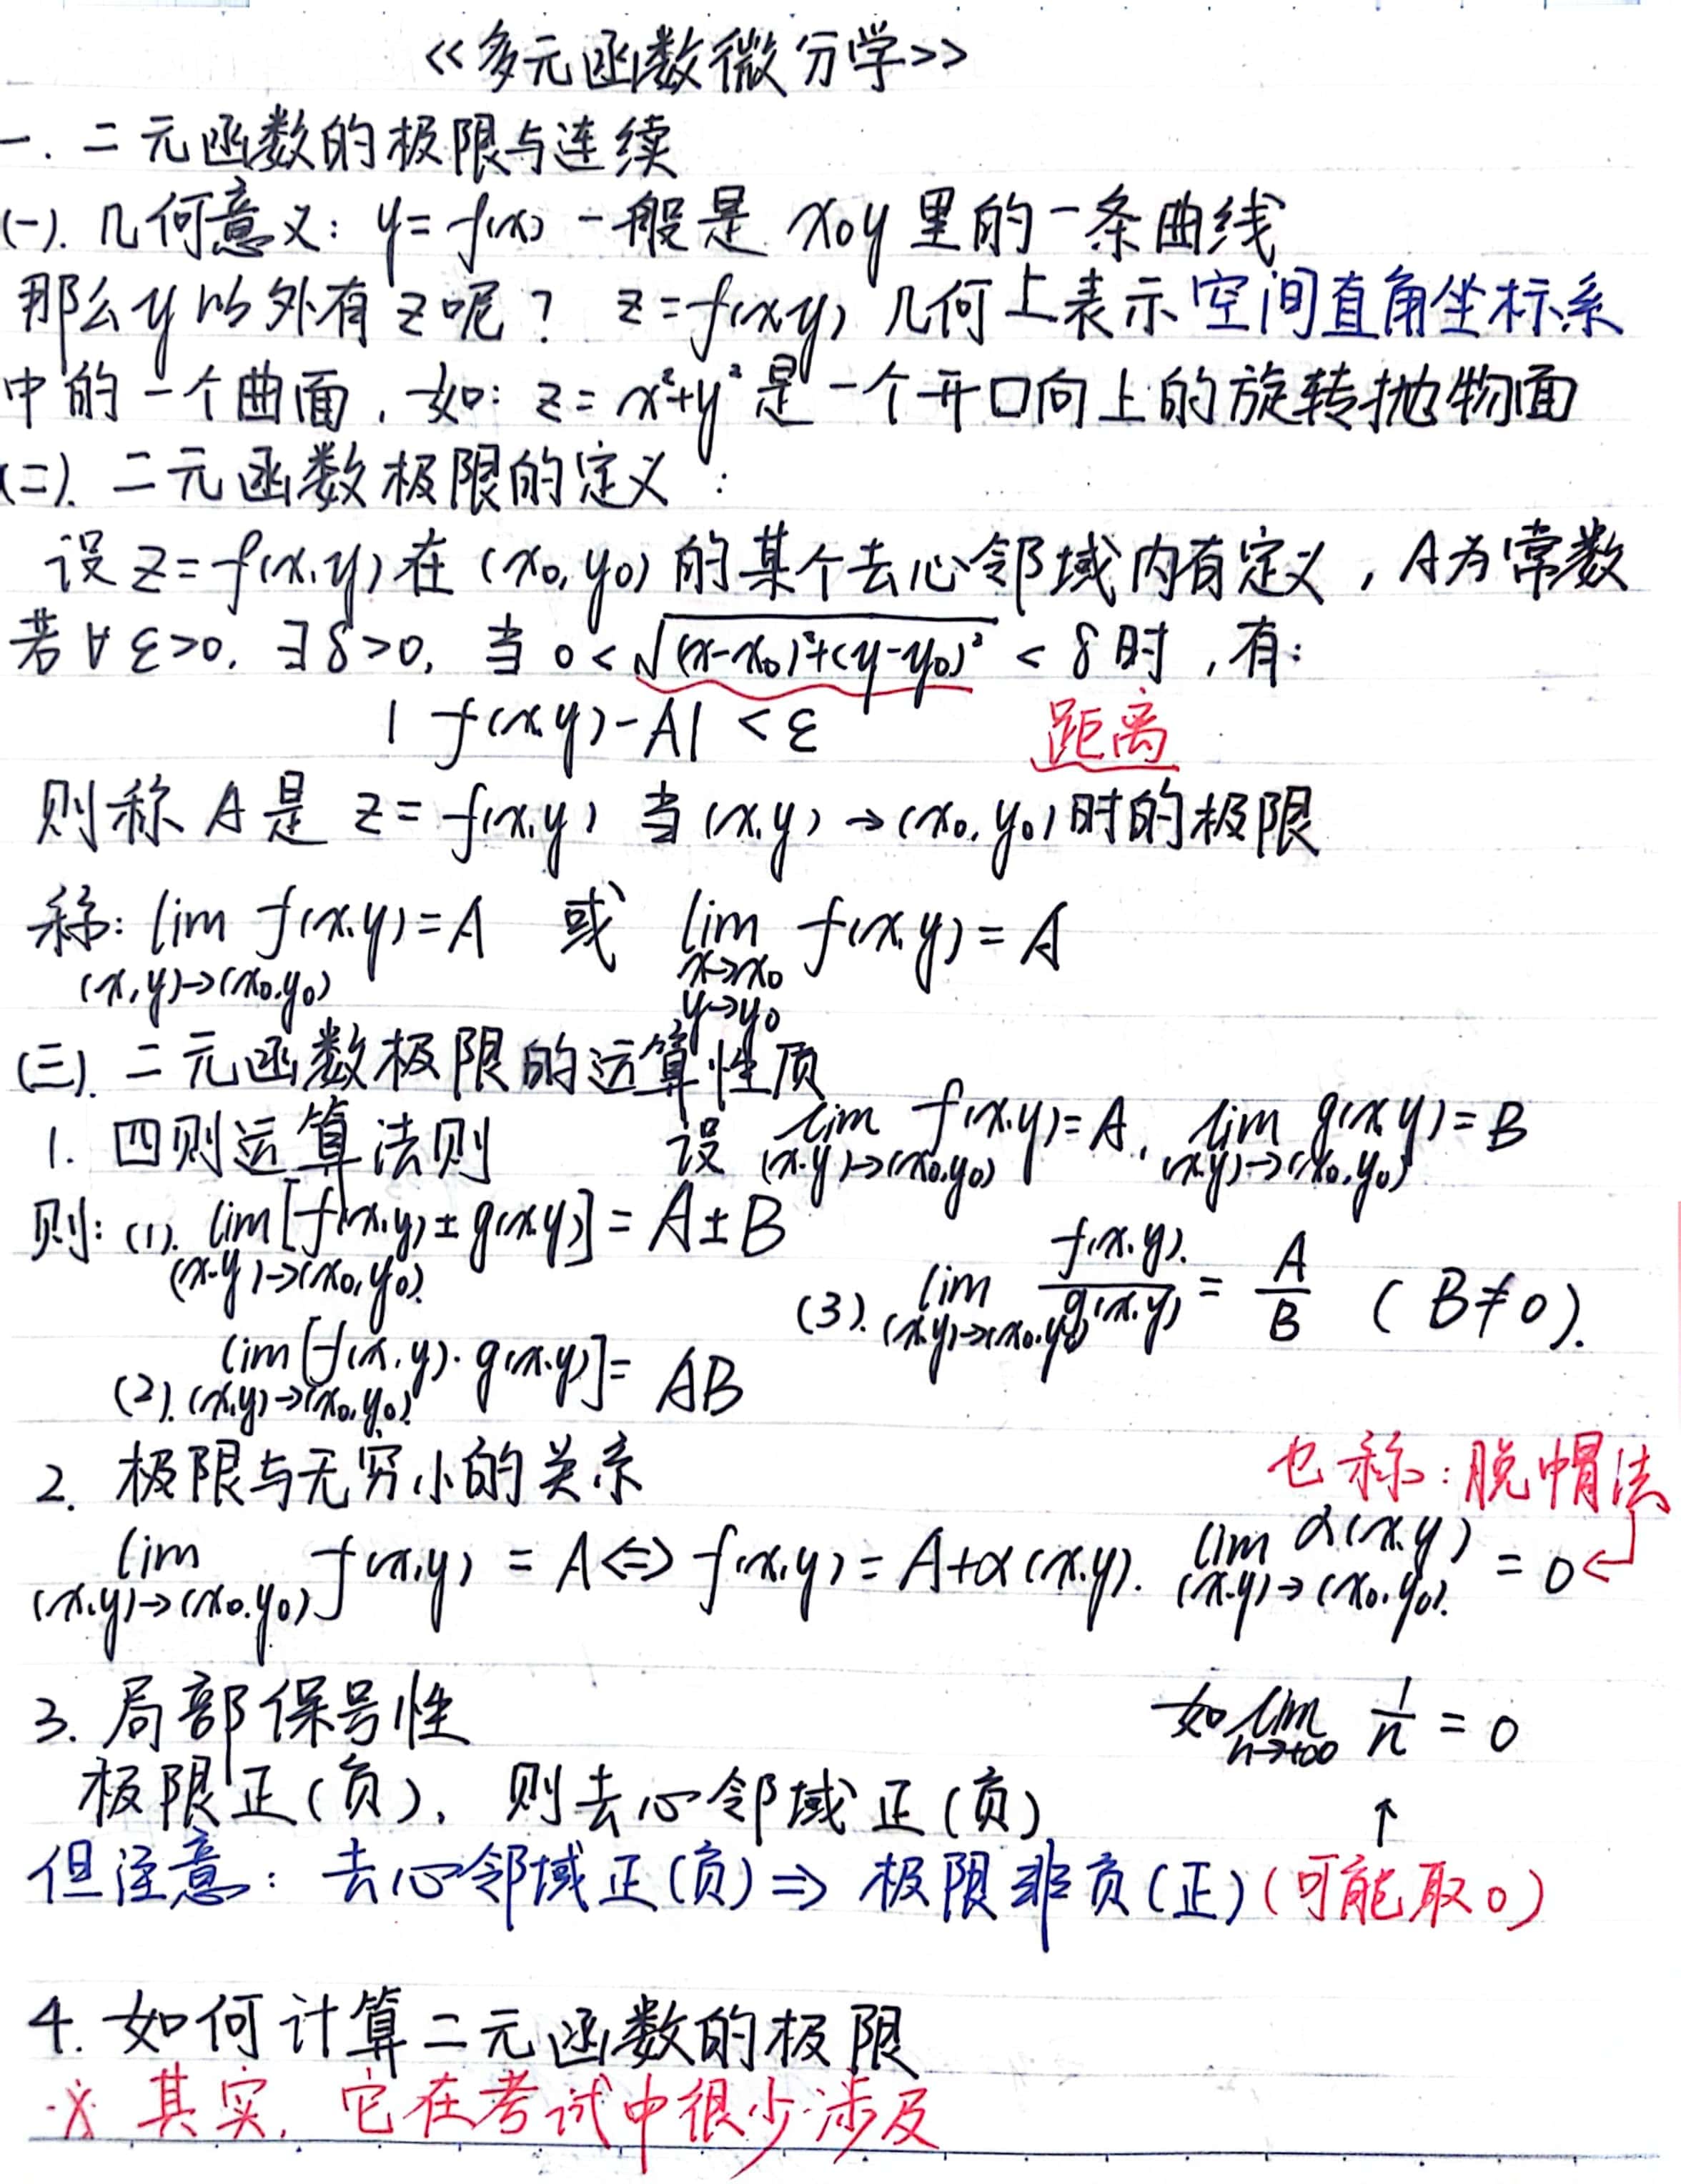 《多元函数微分学》
一. 二元函数的极限与连续
(一). 几何意义: y=f(x) 一般是 xoy 里的一条曲线
那么y以外有z呢? z=f(x,y) 几何上表示空间直角坐标系
中的一个曲面, 如: z=x²+y² 是一个开口向上的旋转抛物面
(二). 二元函数极限的定义:
设 z=f(x,y) 在 (x₀,y₀) 的某个去心邻域内有定义, A为常数
若∀ε>0, ∃δ>0, 当 0<√((x-x₀)²+(y-y₀)²)<δ时, 有:
|f(x,y)-A|<ε 距离
则称 A是 z=f(x,y) 当(x,y)→(x₀,y₀)时的极限
称: lim f(x,y)=A 或 lim f(x,y)=A
(x,y)→(x₀,y₀) x→x₀
y→y₀
(三). 二元函数极限的运算性质
1. 四则运算法则 设 lim f(x,y)=A, lim g(x,y)=B
(x,y)→(x₀,y₀) (x,y)→(x₀,y₀)
则: (1). lim[f(x,y)±g(x,y)]=A±B
(x,y)→(x₀,y₀)
(3). lim f(x,y)/g(x,y) = A/B (B≠0).
(x,y)→(x₀,y₀)
(2). lim[f(x,y)·g(x,y)]=AB
(x,y)→(x₀,y₀)
2. 极限与无穷小的关系 也称: 脱帽法
lim f(x,y)=A⇔f(x,y)=A+α(x,y). lim α(x,y)=0
(x,y)→(x₀,y₀) (x,y)→(x₀,y₀).
3. 局部保号性 如 lim 1/n = 0
n→+∞
极限正(负), 则去心邻域正(负) ↑
但注意: 去心邻域正(负)⇒ 极限非负(正)(可能取0)
4. 如何计算二元函数的极限
※ 其实, 它在考试中很少涉及